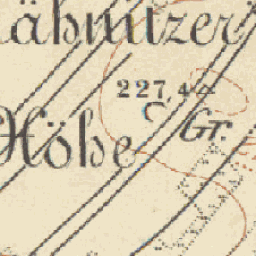 ähnitzer
227,4
Höhe
Gr.